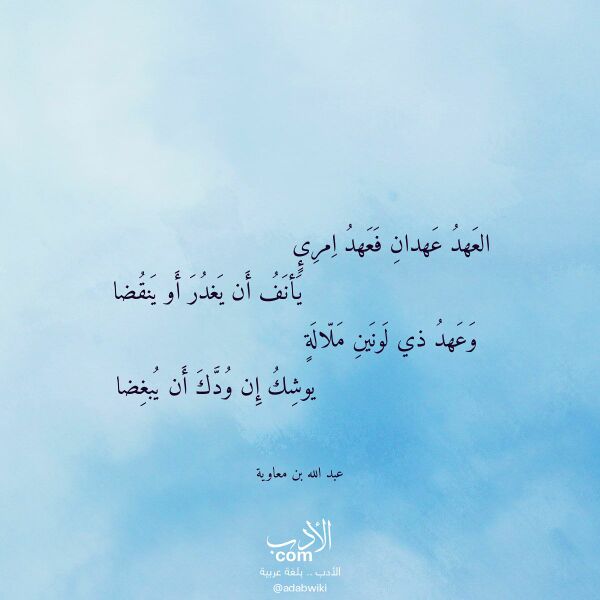 العَهدُ عَهدانِ فَعَهدُ اِمرِئٍ
يَأنَفُ أَن يَغدُرَ أَو يَنقُضا
وَعَهدُ ذي لَونَينِ مَلّالَةٍ
يوشِكُ إِن وُدَّكَ أَن يُبغِضا
عبد الله بن معاوية
الأدب
com
الأدب .. بلغة عربية
@adabwiki